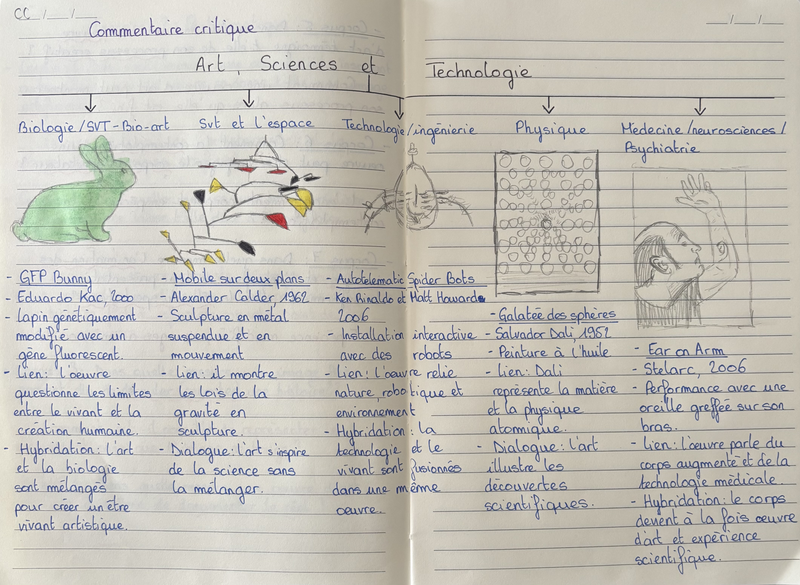 CC __/__/__
__/__/__
Commentaire critique
Art, Sciences et Technologie
Biologie/SVT-Bio-art
Svt et l'espace
Technologie/ingénierie
Physique
Médecine/neurosciences/
Psychiatrie
- GFP Bunny
- Eduardo Kac, 2000
- Lapin génétiquement
modifié avec un
gène fluorescent.
- Lien: l'oeuvre
questionne les limites
entre le vivant et la
création humaine.
- Hybridation: l'art
et la biologie
sont mélangés
pour créer un être
vivant artistique.
- Mobile sur deux plans
- Alexander Calder, 1962
- Sculpture en métal
suspendue et en
mouvement
- Lien: il montre
les lois de la
gravité en
sculpture.
- Dialogue: l'art s'inspire
de la science sans
la mélanger.
- Autotelematic Spider Bots
- Ken Rinaldo et Matt Howard
2006
- Installation interactive
avec des robots
- Lien: L'oeuvre relie
nature, robotique et
environnement
- Hybridation: la
technologie et le
vivant sont fusionnés
dans une même
oeuvre.
- Galatée des sphères
- Salvador Dali, 1952
- Peinture à l'huile
- Lien: Dali
représente la matière
et la physique
atomique.
- Dialogue: l'art
illustre les
découvertes
scientifiques.
- Ear on Arm
- Stelarc, 2006
- Performance avec une
oreille greffée sur son
bras.
- Lien: l'oeuvre parle du
corps augmenté et de la
technologie médicale.
- Hybridation: le corps
devient à la fois oeuvre
d'art et expérience
scientifique.